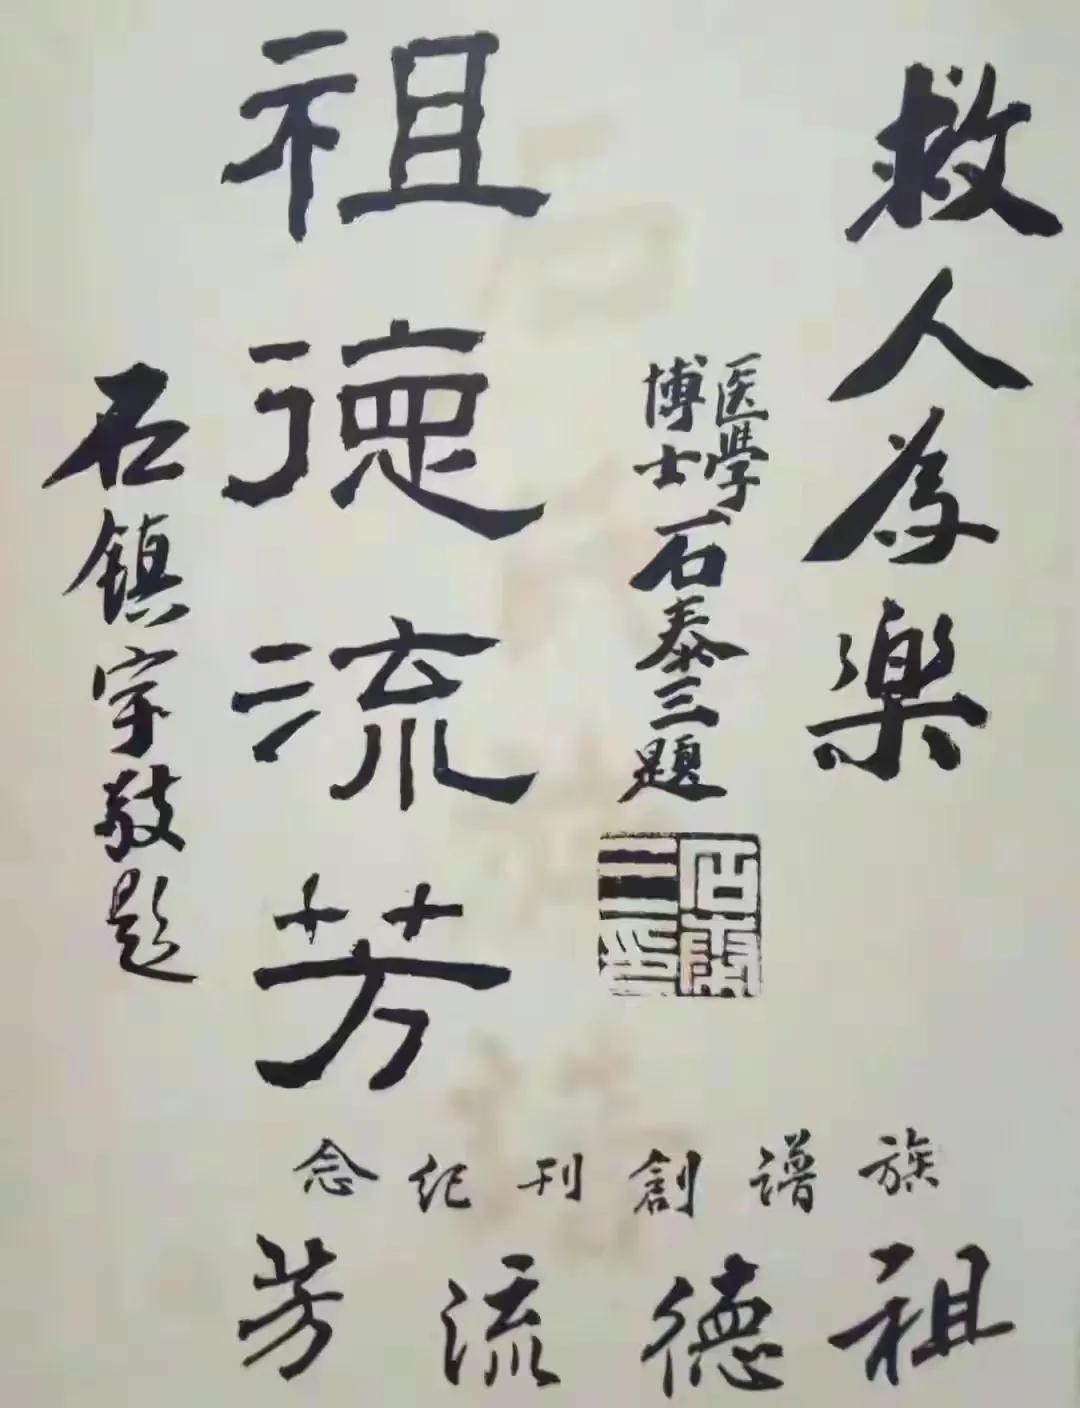 救人為樂
医學
博士
石泰三題
祖德流芳
石鎮宗敬題
族譜創刊紀念
祖德流芳